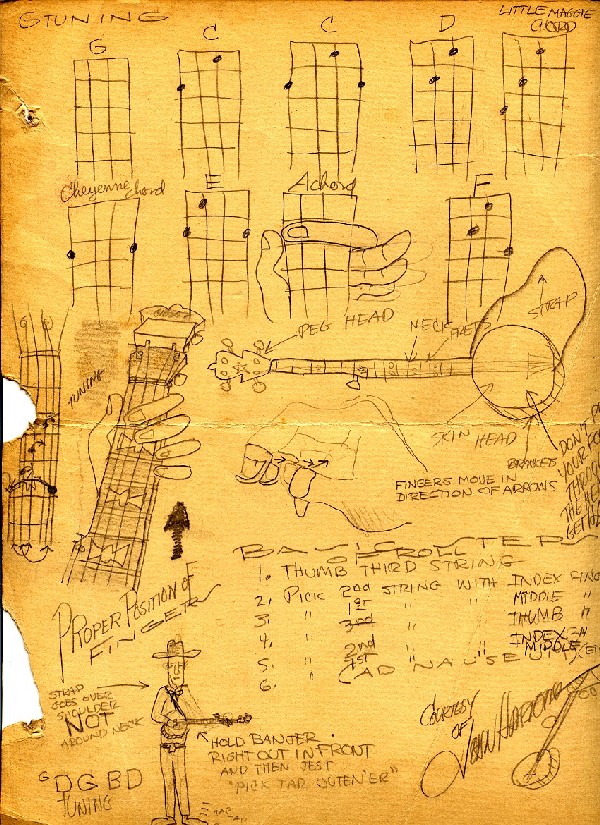 G TUNING
LITTLE MAGGIE
CHORD
G
C
C
D
Cheyenne chord
E
A chord
F
PEG HEAD
NECK
FRETS
STRAP
TUNING
SKIN HEAD
BRACKETS
DON'T
YOUR
THROUGH
THE
FINGERS MOVE IN
DIRECTION OF ARROWS
BASIC
OF ROLL
1. THUMB THIRD STRING
2. PICK 2nd STRING WITH INDEX
3. " 1st " " MIDDLE "
4. " 3rd " THUMB "
5. " 2nd " " INDEX
6. " 1st MIDDLE
(AD NAUSEUM
PROPER POSITION OF
FINGERS
STRAP
GOES OVER
SHOULDER
NOT
AROUND NECK
HOLD BANJER
RIGHT OUT IN FRONT
AND THEN JEST
"PICK TAR OUTEN'ER"
COURTESY
OF
John Hartford
G D G B D
TUNING